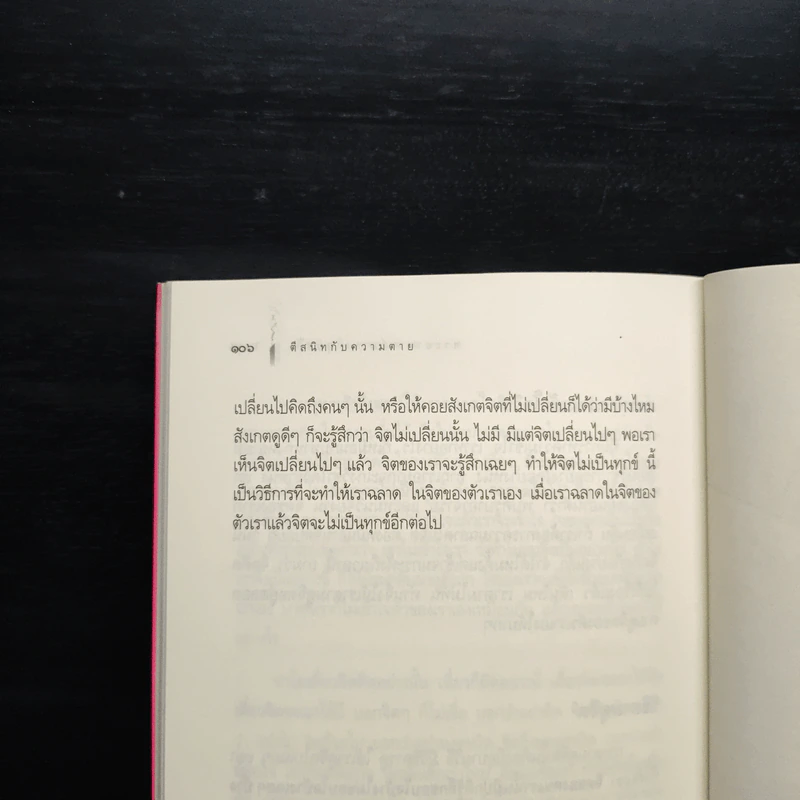 ๑๐๖ ตีสนิทกับความตาย
เปลี่ยนไปคิดถึงคนๆ นั้น หรือให้คอยสังเกตจิตที่ไม่เปลี่ยนก็ได้ว่ามีบ้างไหม
สังเกตดูดีๆ ก็จะรู้สึกว่า จิตไม่เปลี่ยนนั้น ไม่มี มีแต่จิตเปลี่ยนไปๆ พอเรา
เห็นจิตเปลี่ยนไปๆ แล้ว จิตของเราจะรู้สึกเฉยๆ ทำให้จิตไม่เป็นทุกข์ นี้
เป็นวิธีการที่จะทำให้เราฉลาด ในจิตของตัวเราเอง เมื่อเราฉลาดในจิตของ
ตัวเราแล้วจิตจะไม่เป็นทุกข์อีกต่อไป